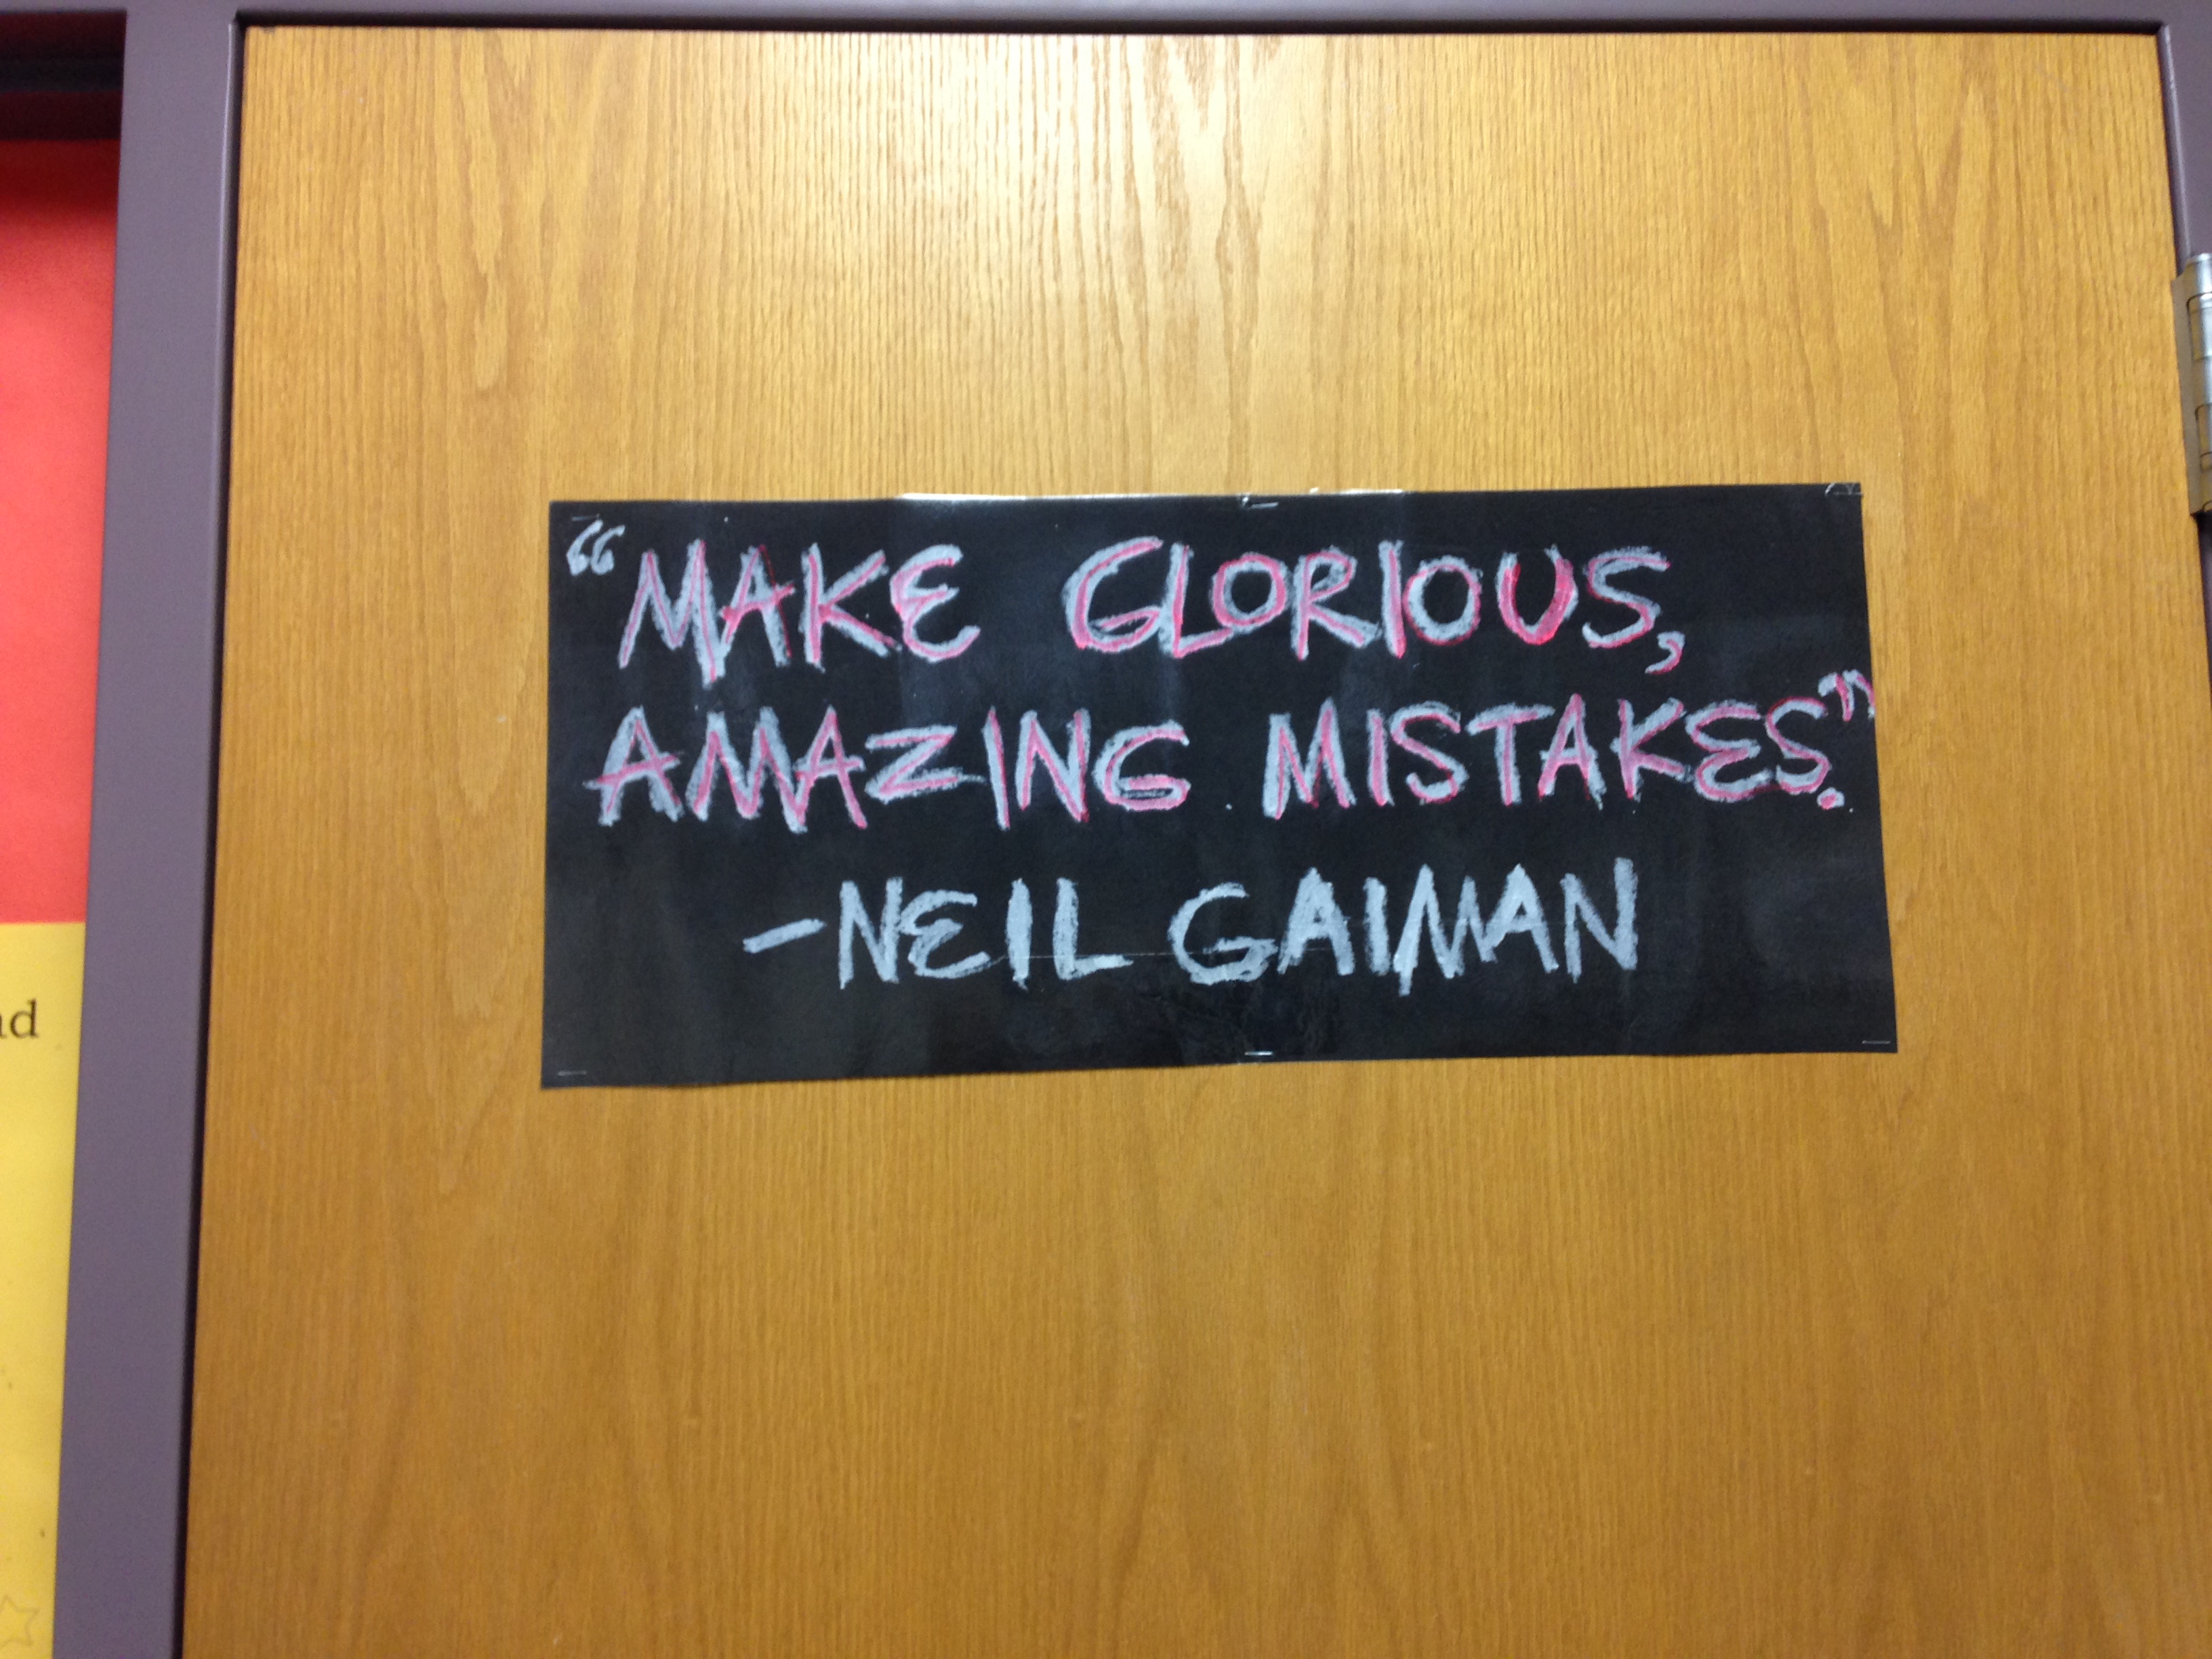 “MAKE GLORIOUS,
AMAZING MISTAKES.”
-NEIL GAIMAN